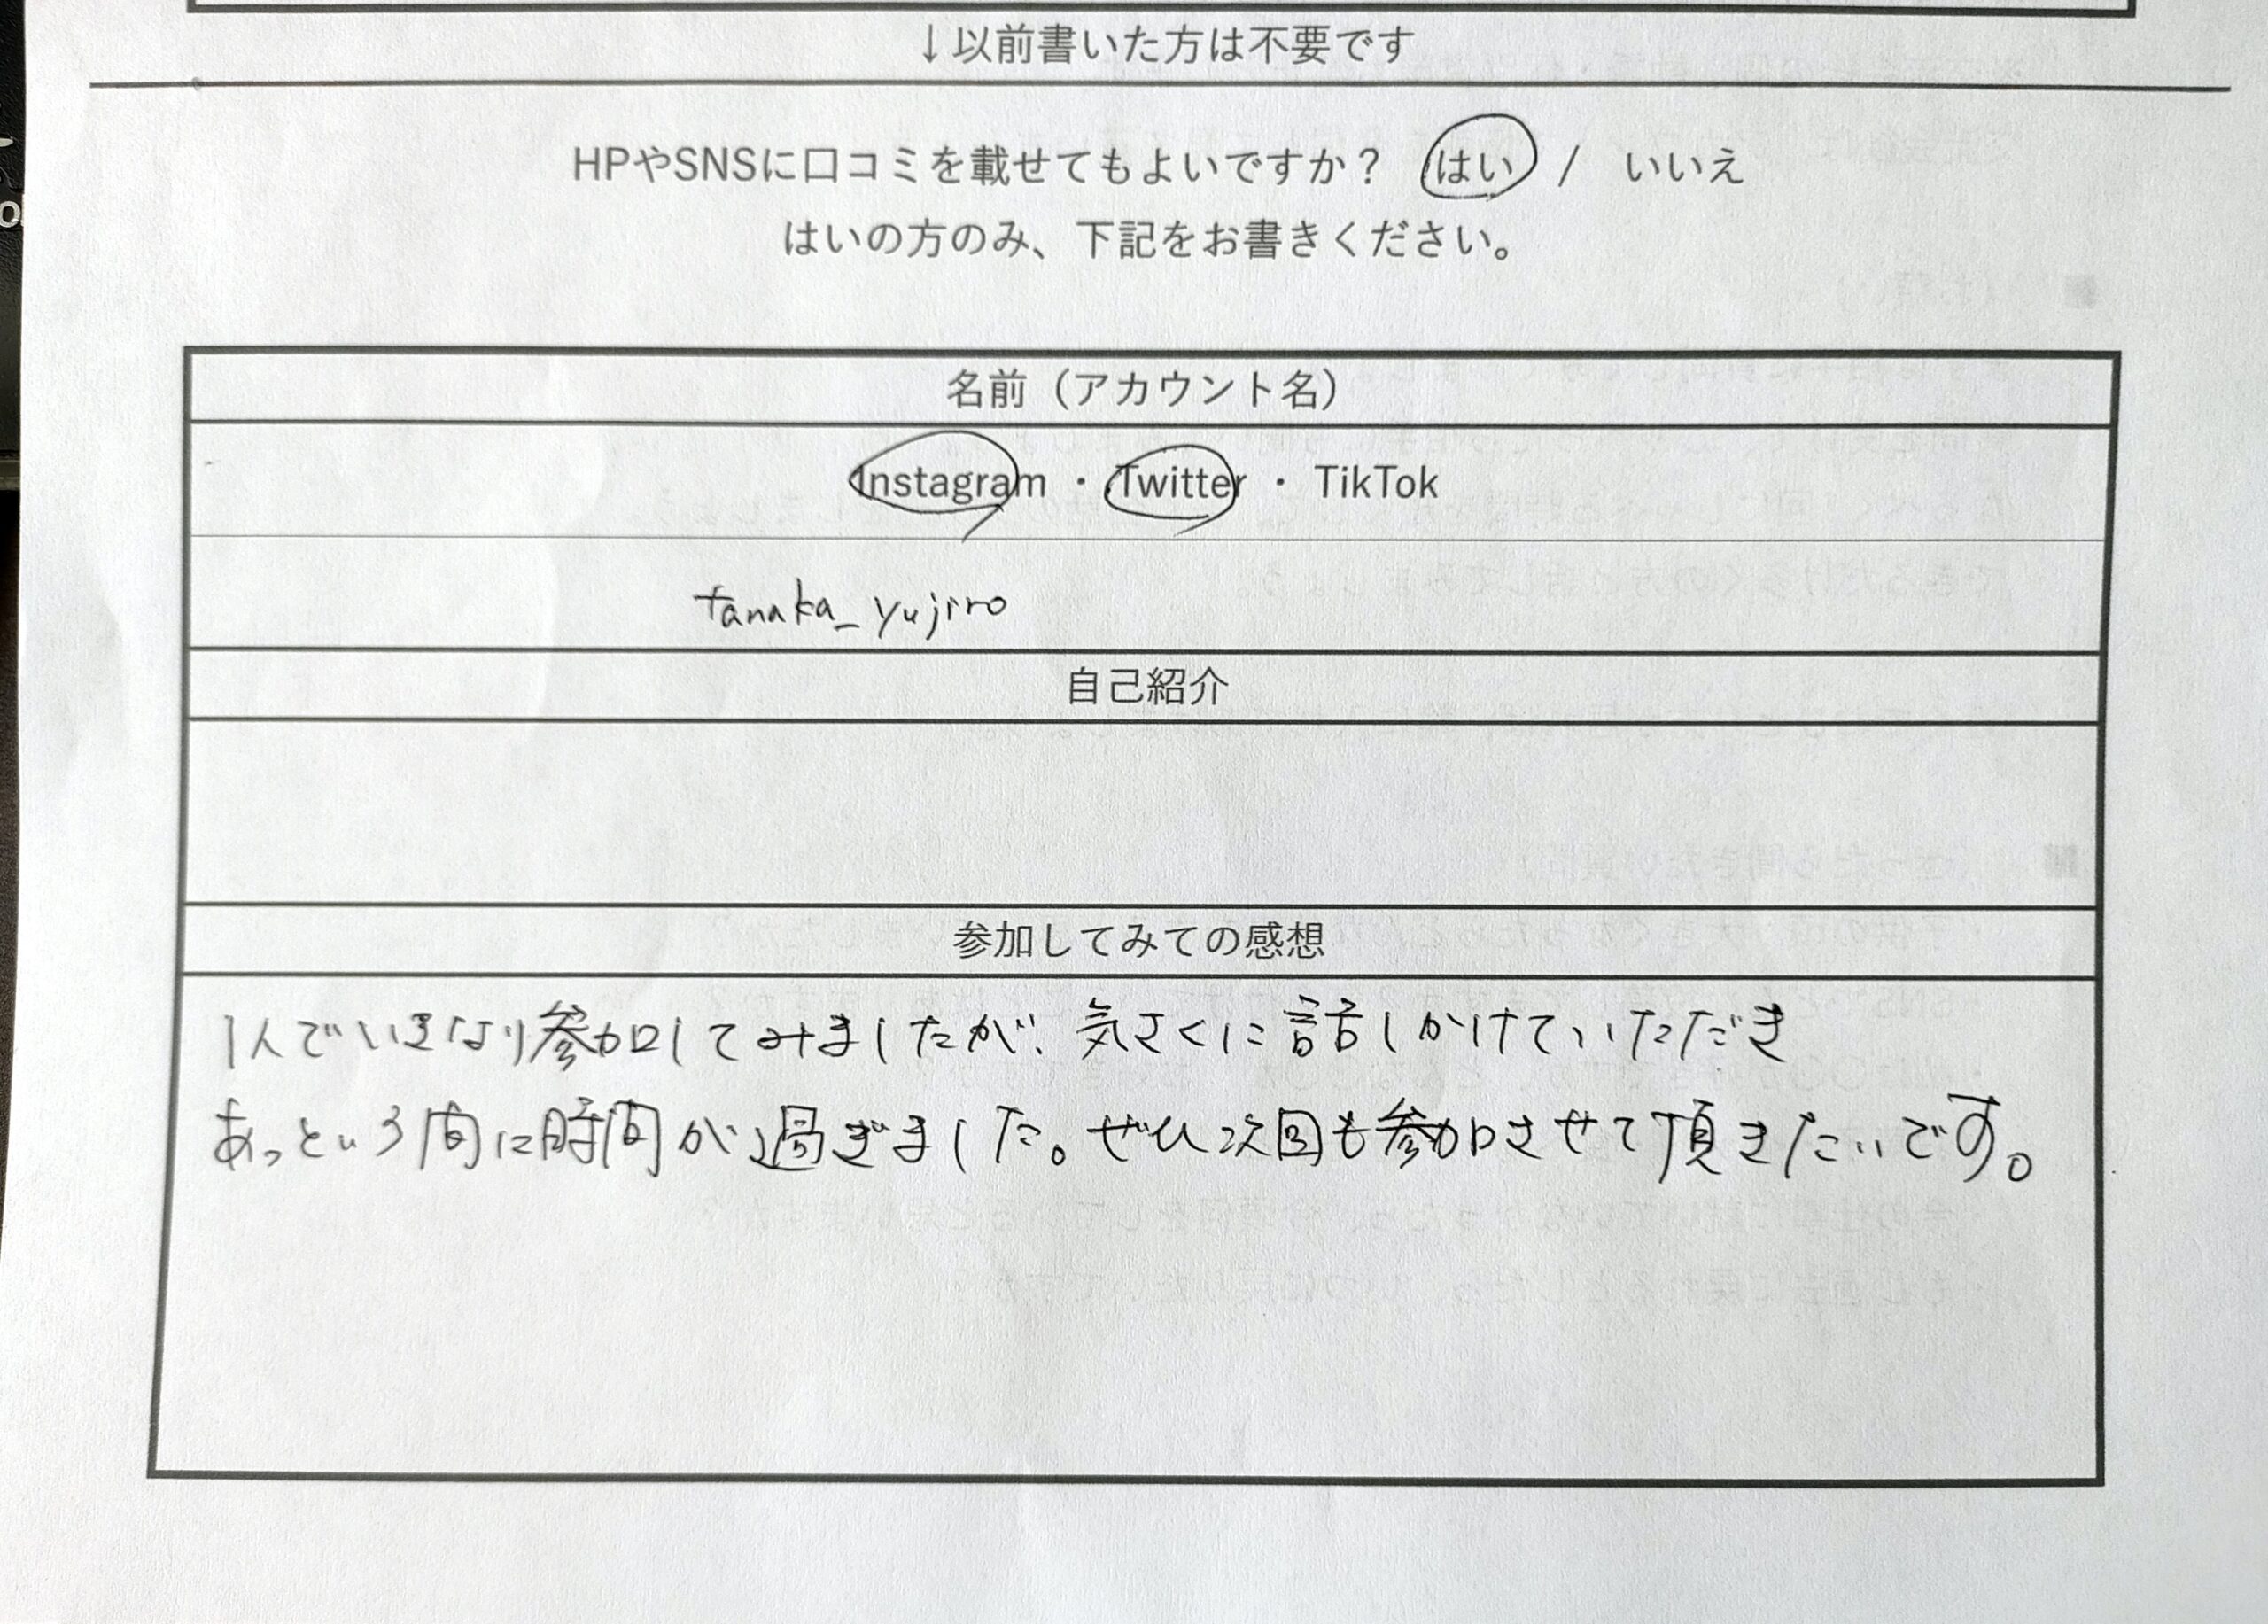 ↓以前書いた方は不要です
HPやSNSに口コミを載せてもよいですか？ はい / いいえ
はいの方のみ、下記をお書きください。
名前（アカウント名）
Instagram ・ Twitter ・ TikTok
tanaka_yujiro
自己紹介
参加してみての感想
1人でいきなり参加してみましたが、気さくに話しかけていただき
あっという間に時間が過ぎました。ぜひ次回も参加させて頂きたいです。